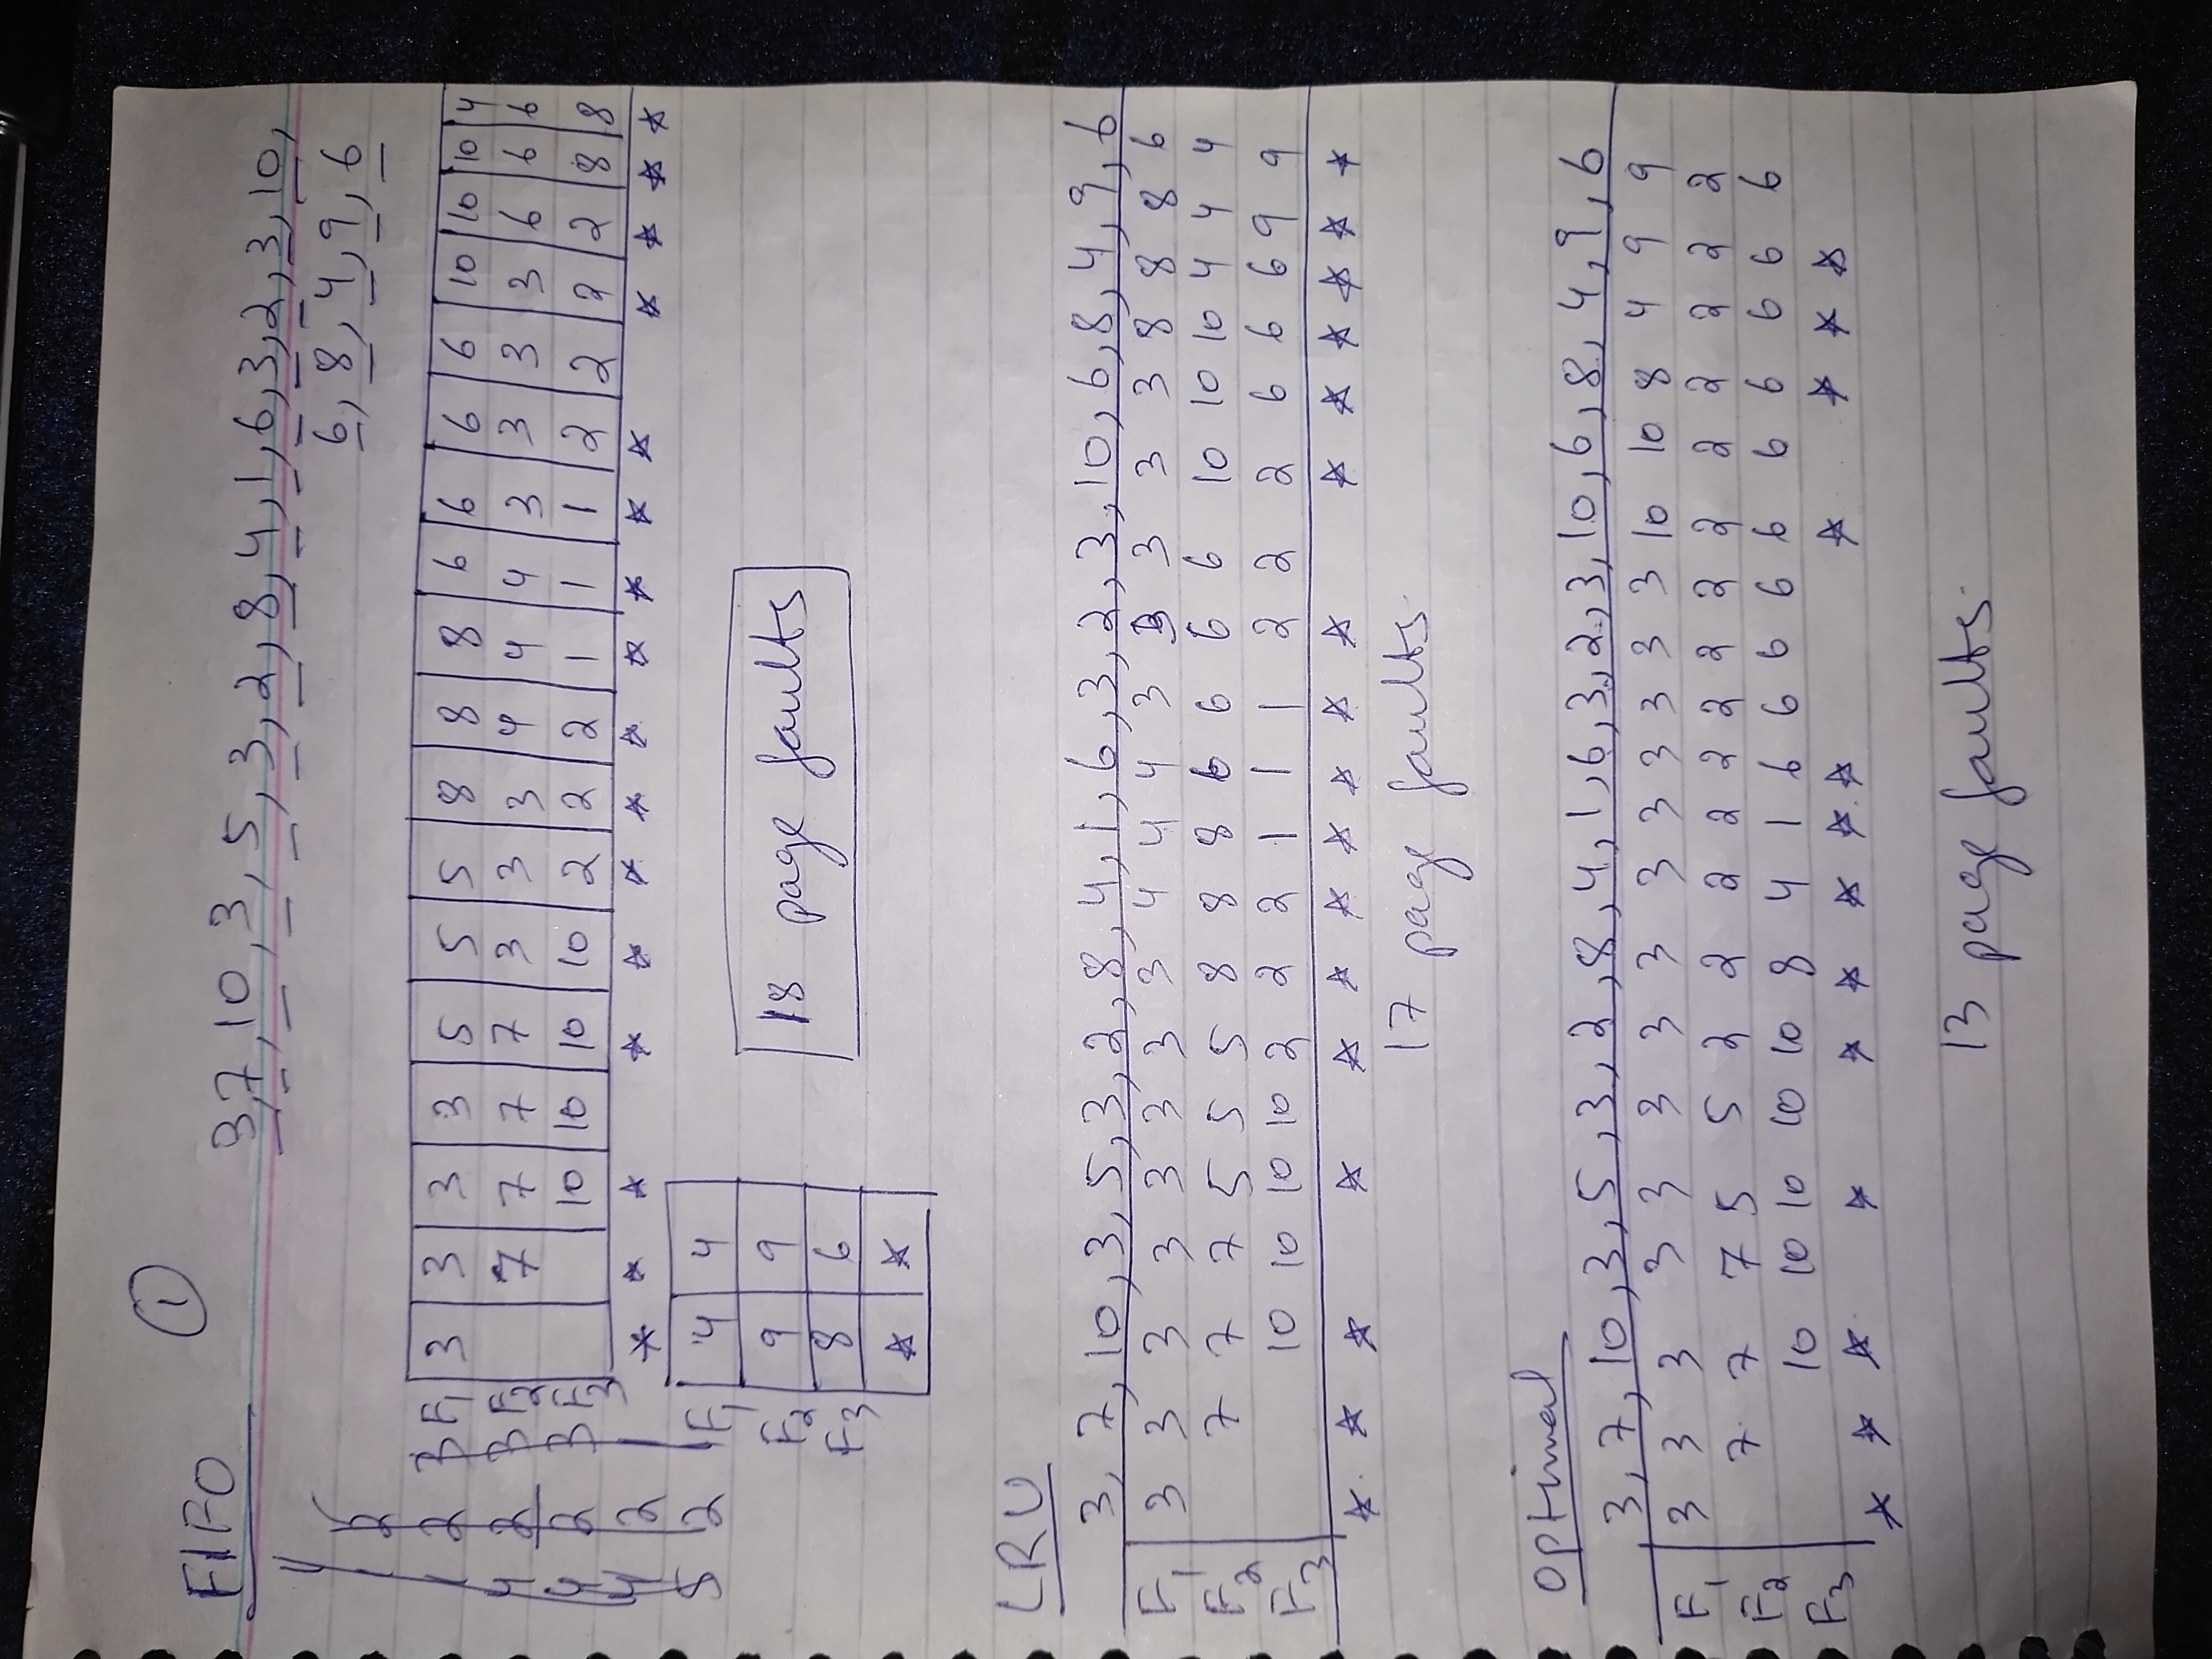 ①
FIFO
3,7,10,3,5,3,2,8,4,1,6,3,2,3,10,
6,8,4,9,6
F1 3 3 3 3 5 5 5 8 8 8 6 6 6 6 10 10 10 4
F2 7 7 7 7 3 3 3 4 4 4 3 3 3 3 6 6 6
F3 10 10 10 10 2 2 2 1 1 1 2 2 2 2 8 8
☆ ☆ ☆ ☆ ☆ ☆ ☆ ☆ ☆ ☆ ☆ ☆ ☆ ☆ ☆ ☆
F1 4 4
F2 9 9
F3 8 6
☆ ☆
18 page faults
LRU
3, 7, 10, 3, 5, 3, 2, 8, 4, 1, 6, 3, 2, 3, 10, 6, 8, 4, 9, 6
F1 3 3 3 3 3 3 3 3 4 4 4 3 3 3 3 3 8 8 8 6
F2 7 7 7 5 5 5 8 8 8 6 6 6 6 10 10 10 4 4 4
F3 10 10 10 10 2 2 2 1 1 1 2 2 2 6 6 6 9 9
☆ ☆ ☆ ☆ ☆ ☆ ☆ ☆ ☆ ☆ ☆ ☆ ☆ ☆ ☆ ☆ ☆
17 page faults
optimal
3, 7, 10, 3, 5, 3, 2, 8, 4, 1, 6, 3, 2, 3, 10, 6, 8, 4, 9, 6
F1 3 3 3 3 3 3 3 3 3 3 3 3 3 3 10 10 8 4 9 9
F2 7 7 7 5 5 2 2 2 2 2 2 2 2 2 2 2 2 2 2
F3 10 10 10 10 10 8 4 1 6 6 6 6 6 6 6 6 6 6
☆ ☆ ☆ ☆ ☆ ☆ ☆ ☆ ☆ ☆ ☆ ☆ ☆
13 page faults